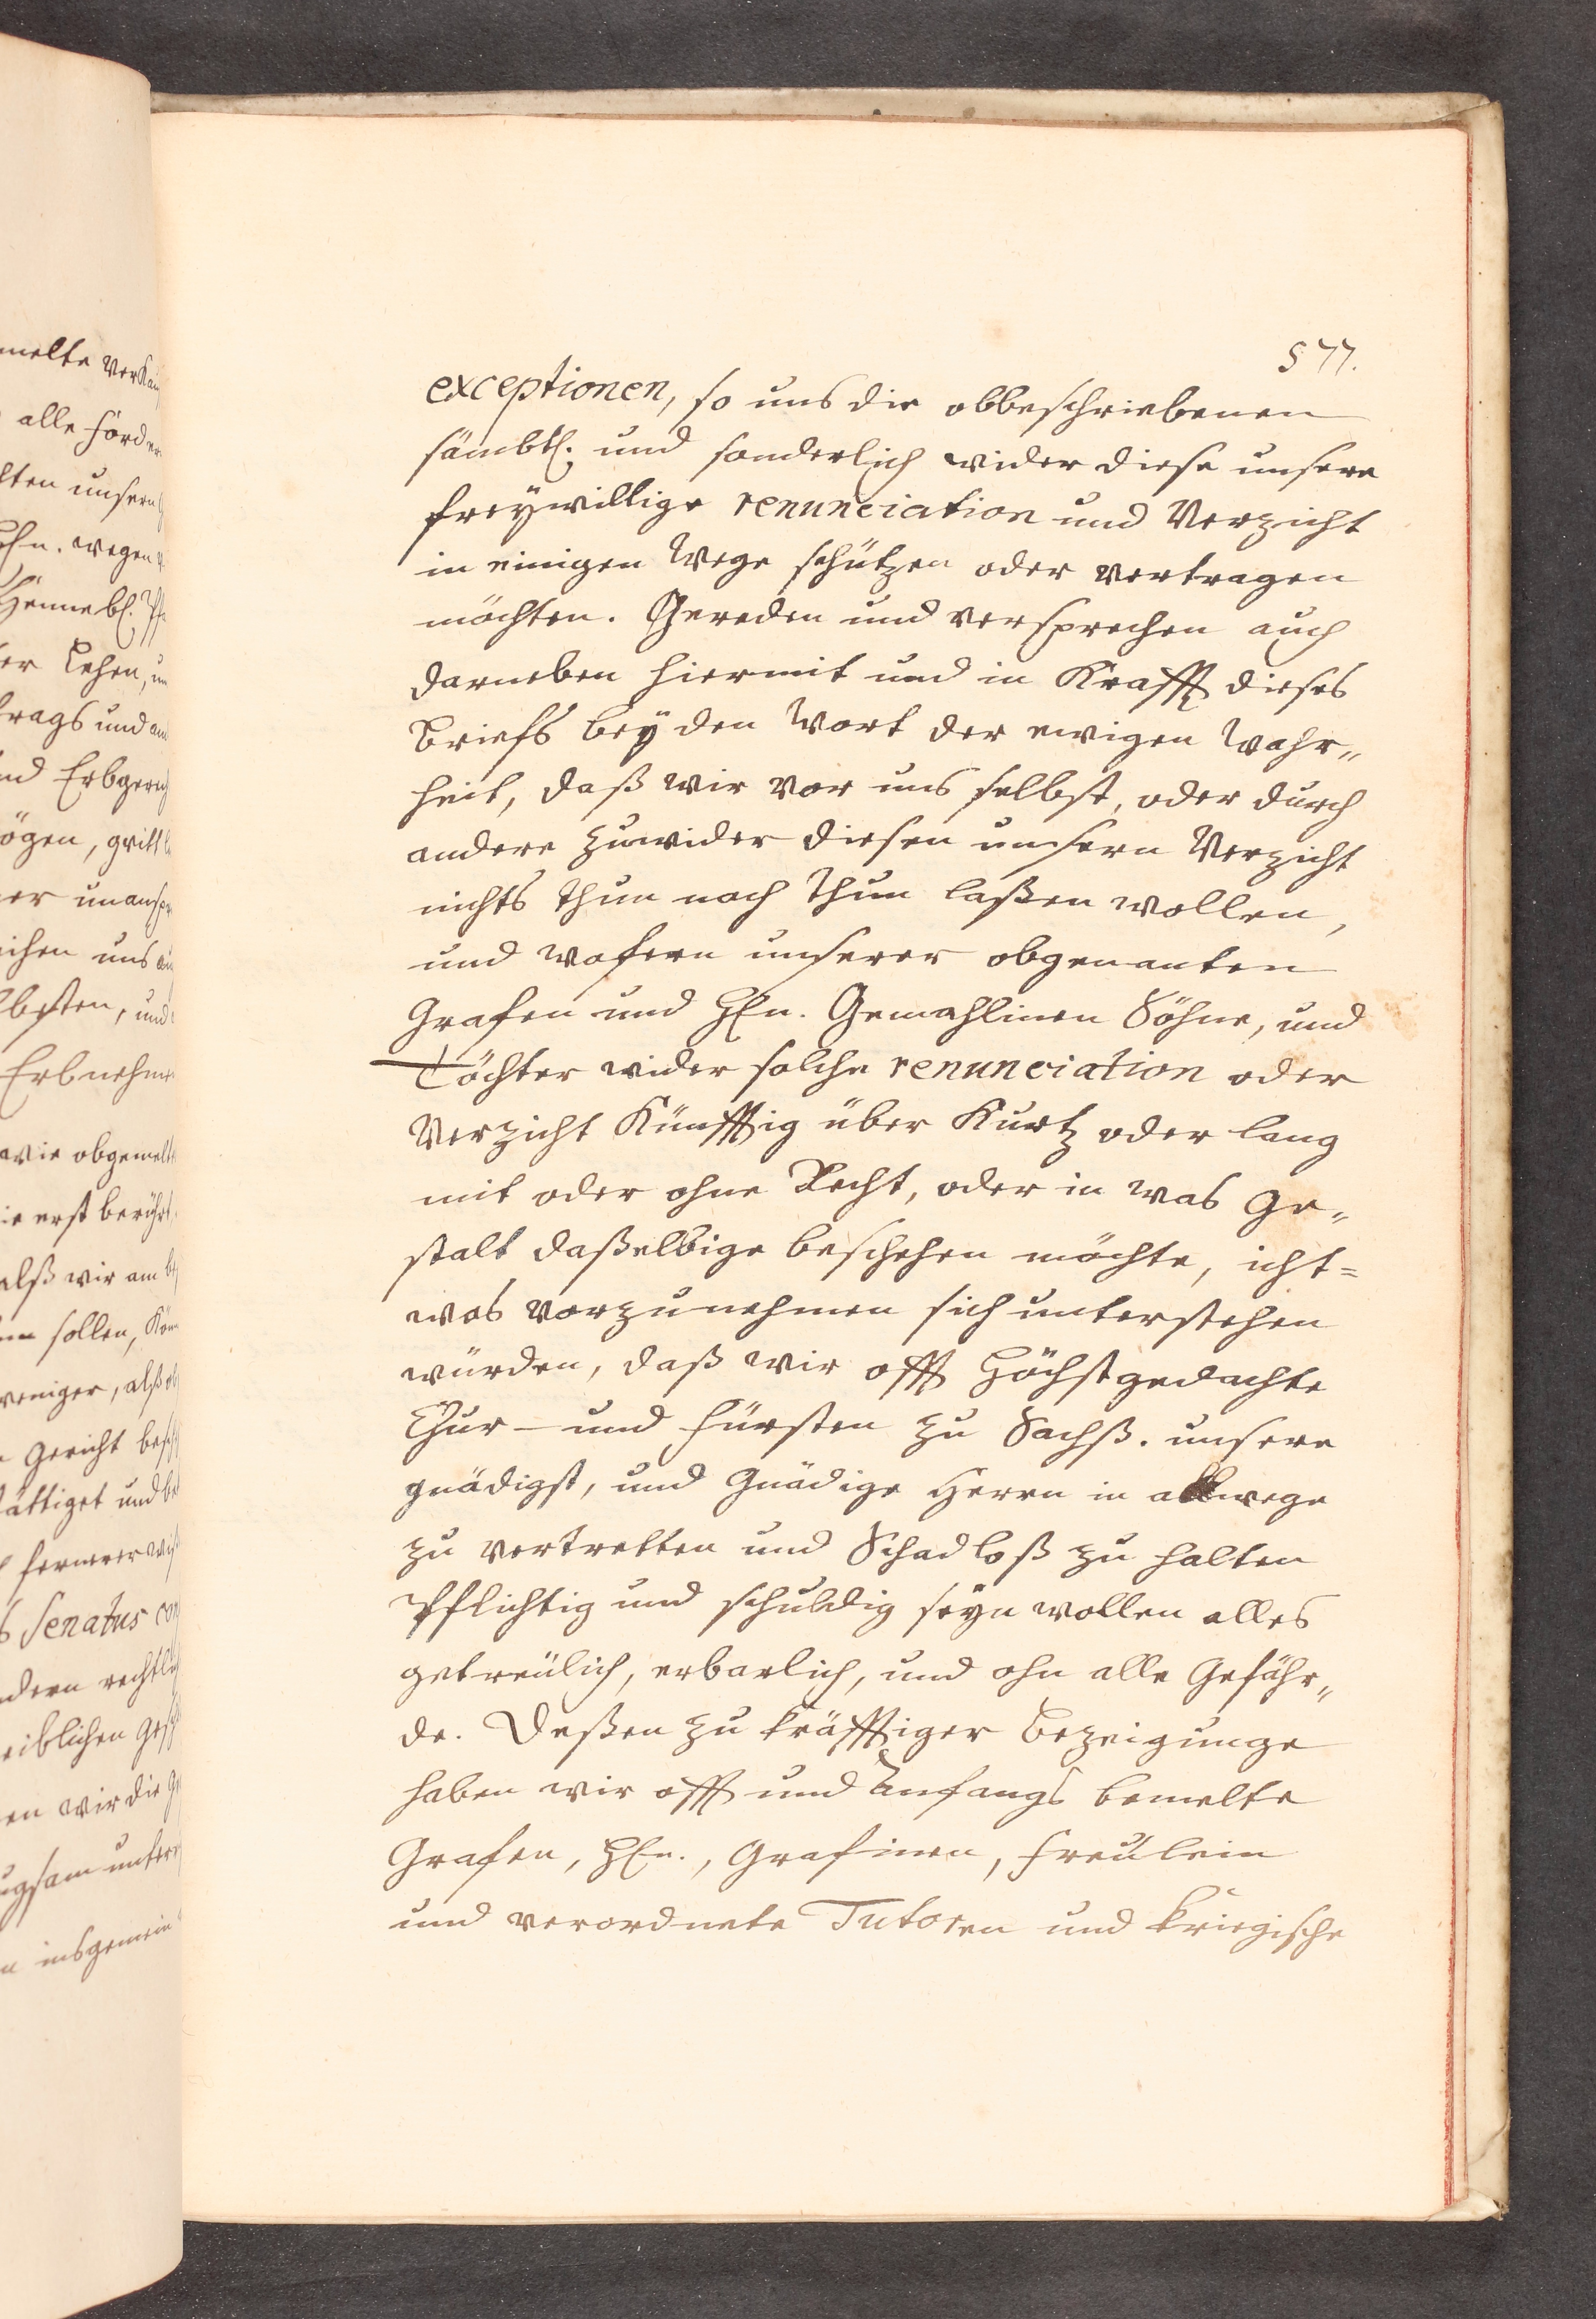 577.
exceptionen, so uns die obbeschriebenen
sämbtl. und sonderlich wider diese unsere
freÿwillige renunciation und Verzicht
in einigen Wege schützen oder vertragen
möchten. Gereden und versprechen auch
darneben hiermit und in Krafft dieses
Briefs beÿ den Wort der ewigen Wahr„
heit, daß wir vor uns selbst, oder durch
andere zuwider diesen unsern Verzicht
nichts thun noch thun laßen wollen,
und wofern unserer obgenanten
Grafen und HEn. Gemahlinen Söhne, und
Töchter wider solche renunciation oder
Verzicht Künfftig über Kurtz oder lang
mit oder ohne Recht, oder in was Ge„
stalt daßelbige beschehen möchte, icht=
was vorzunehmen sich unterstehen
würden, daß wir offt Höchstgedachte
Chur- und Fürsten zu Sachß. unsere
gnädigst, und Gnädige Herrn in allwege
zu vertretten und Schadloß zu halten
Pflichtig und schuldig seÿn wollen alles
getreülich, erbarlich, und ohn alle Gefähr„
de. Deßen zu kräfftiger Bezeigunge
haben wir offt und Anfangs bemelte
Grafen, HEn., Grafinen, Freulein
und verordnete Tutoren und kriegische
melte Verkau
alle förder
lten unsern
HEn. wegen
Hennebl.
er Lehen, un
trags und an
nd Erbgerech
ögen,
er unanspr
ichen uns
besten, und
Erbnehm
wie obgemelt
ie erst berührt
alß wir am
sollen, Kön
weniger, alß
Gericht besch
ättiget und be
fernerer
s Senatus con
ndern rechtlich
eiblichen Gesch
en wir die G
ugsam unterr
n insgemein